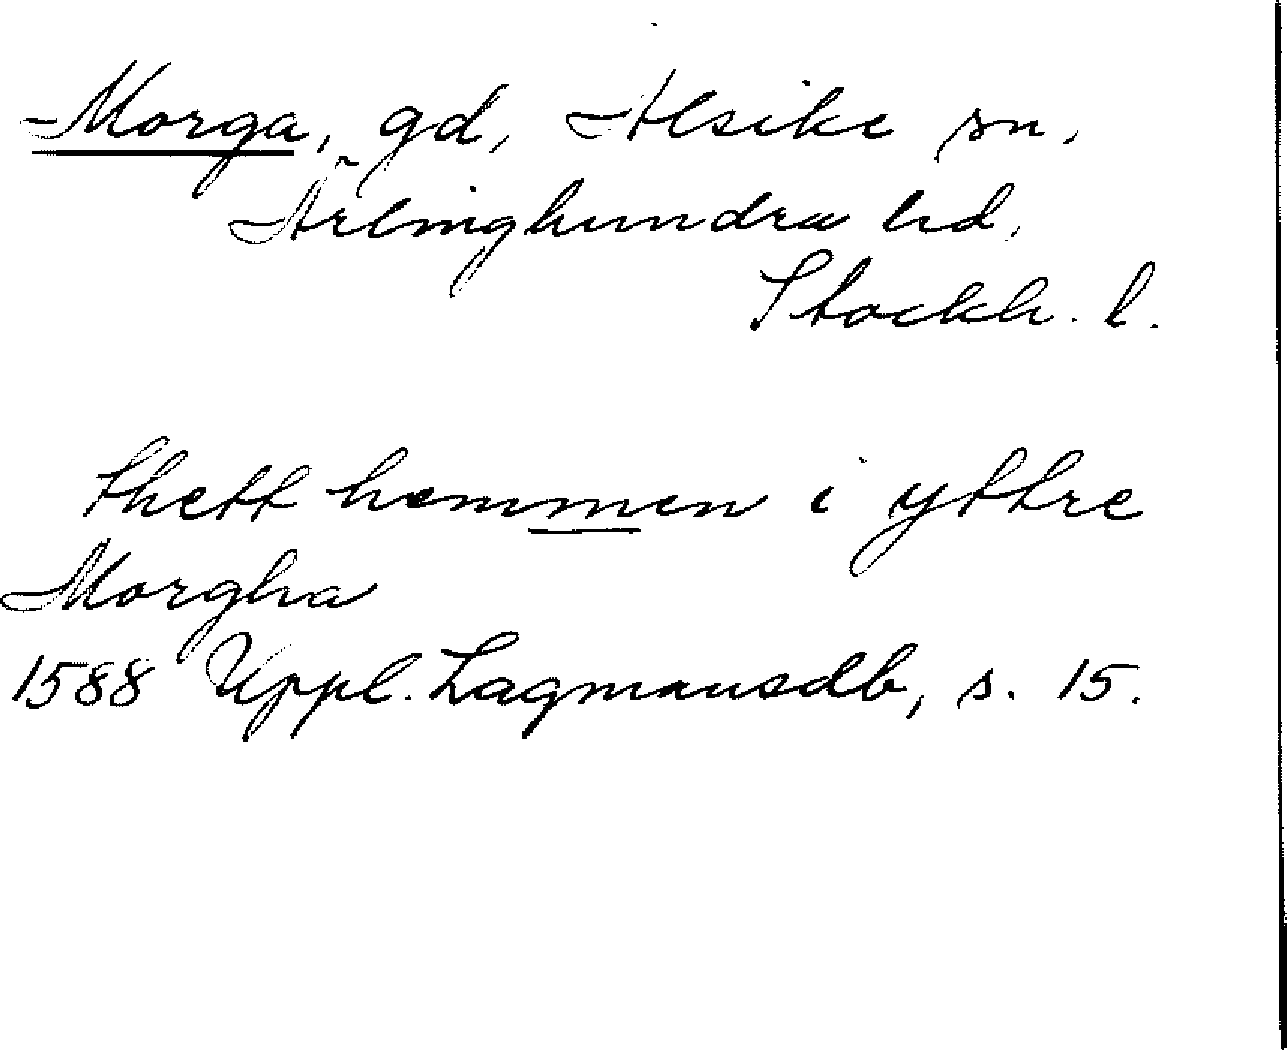 Morga, gd, Alsike sn,
Ärlinghundra hd,
Stockh. l.
thett hemmen i yttre
Morgha
1588 Uppl. Lagmansdb, s. 15.